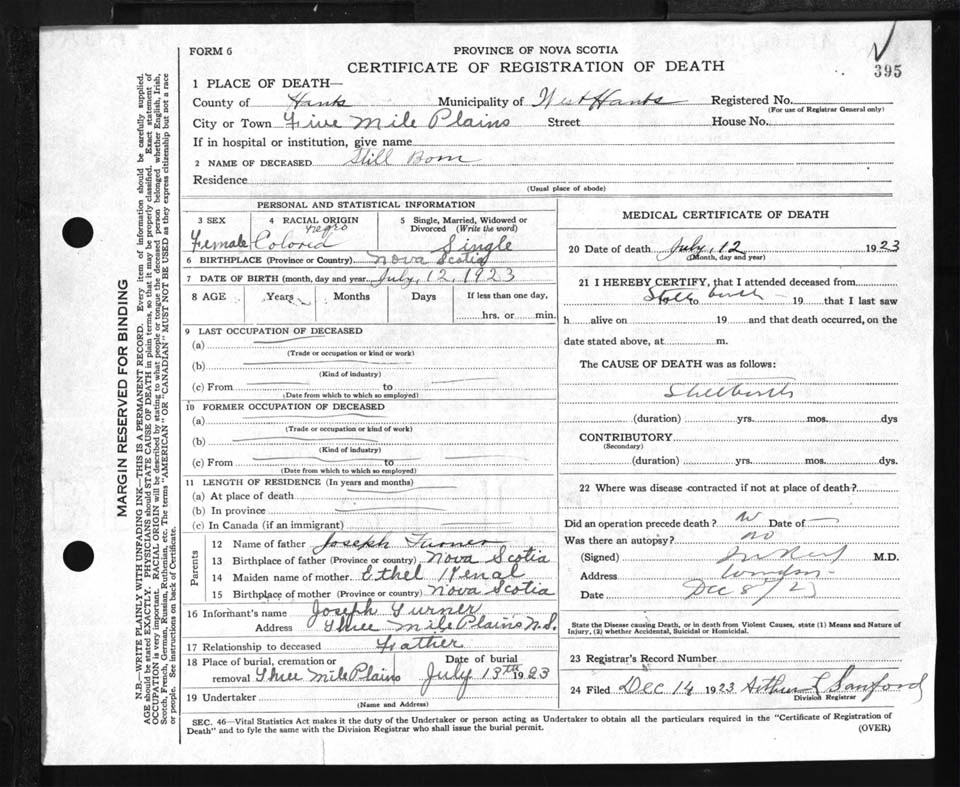 FORM 6
PROVINCE OF NOVA SCOTIA
CERTIFICATE OF REGISTRATION OF DEATH
395
1 PLACE OF DEATH—
County of Hants Municipality of West Hants Registered No.
(For use of Registrar General only)
City or Town Five Mile Plains Street House No.
If in hospital or institution, give name
2 NAME OF DECEASED Still Born
Residence
(Usual place of abode)
MARGIN RESERVED FOR BINDING
N.B.—WRITE PLAINLY WITH UNFADING INK—THIS IS A PERMANENT RECORD. Every item of information should be carefully supplied.
AGE should be stated EXACTLY. PHYSICIANS should STATE CAUSE OF DEATH in plain terms, so that it may be properly classified. Exact statement of
OCCUPATION is very important. RACIAL ORIGIN will be described by stating to what people or tongue the deceased person belonged whether English, Irish,
Scotch, French, German, Russian, Ruthenian, etc. The terms "AMERICAN" OR "CANADIAN" MUST NOT BE USED as they express citizenship but not a race
or people. See instructions on back of Certificate.
PERSONAL AND STATISTICAL INFORMATION
3 SEX 4 RACIAL ORIGIN 5 Single, Married, Widowed or
Divorced (Write the word)
negro
Female Colored Single
6 BIRTHPLACE (Province or Country) Nova Scotia
7 DATE OF BIRTH (month, day and year) July, 12, 1923
8 AGE Years Months Days If less than one day,
hrs. or min.
9 LAST OCCUPATION OF DECEASED
(a)
(Trade or occupation or kind or work)
(b)
(Kind of industry)
(c) From to
(Date from which to which so employed)
10 FORMER OCCUPATION OF DECEASED
(a)
(Trade or occupation or kind of work)
(b)
(Kind of industry)
(c) From to
(Date from which to which so employed)
11 LENGTH OF RESIDENCE (In years and months)
(a) At place of death
(b) In province
(c) In Canada (if an immigrant)
Parents
12 Name of father Joseph Turner
13 Birthplace of father (Province or country) Nova Scotia
14 Maiden name of mother Ethel
15 Birthplace of mother (Province or country) Nova Scotia
16 Informant's name Joseph Turner
Address Three Mile Plains N.S.
17 Relationship to deceased Father
18 Place of burial, cremation or Date of burial
removal Three Mile Plains July 13th 1923
19 Undertaker
(Name and Address)
MEDICAL CERTIFICATE OF DEATH
20 Date of death July, 12 1923
(Month, day and year)
21 I HEREBY CERTIFY, that I attended deceased from
Still birth
to 19 that I last saw
h alive on 19 and that death occurred, on the
date stated above, at m.
The CAUSE OF DEATH was as follows:
Stillbirth
(duration) yrs. mos. dys
CONTRIBUTORY
(Secondary)
(duration) yrs. mos. dys.
22 Where was disease contracted if not at place of death?
Did an operation precede death? Date of
Was there an autopsy? no
(Signed) M.D.
Address Windsor
Date Dec 8/23
State the Disease causing Death, or in death from Violent Causes, state (1) Means and Nature of
Injury, (2) whether Accidental, Suicidal or Homicidal.
23 Registrar's Record Number
24 Filed Dec 14 1923 Arthur L Sanford
Division Registrar
SEC. 46—Vital Statistics Act makes it the duty of the Undertaker or person acting as Undertaker to obtain all the particulars required in the "Certificate of Registration of
Death" and to fyle the same with the Division Registrar who shall issue the burial permit.
(OVER)